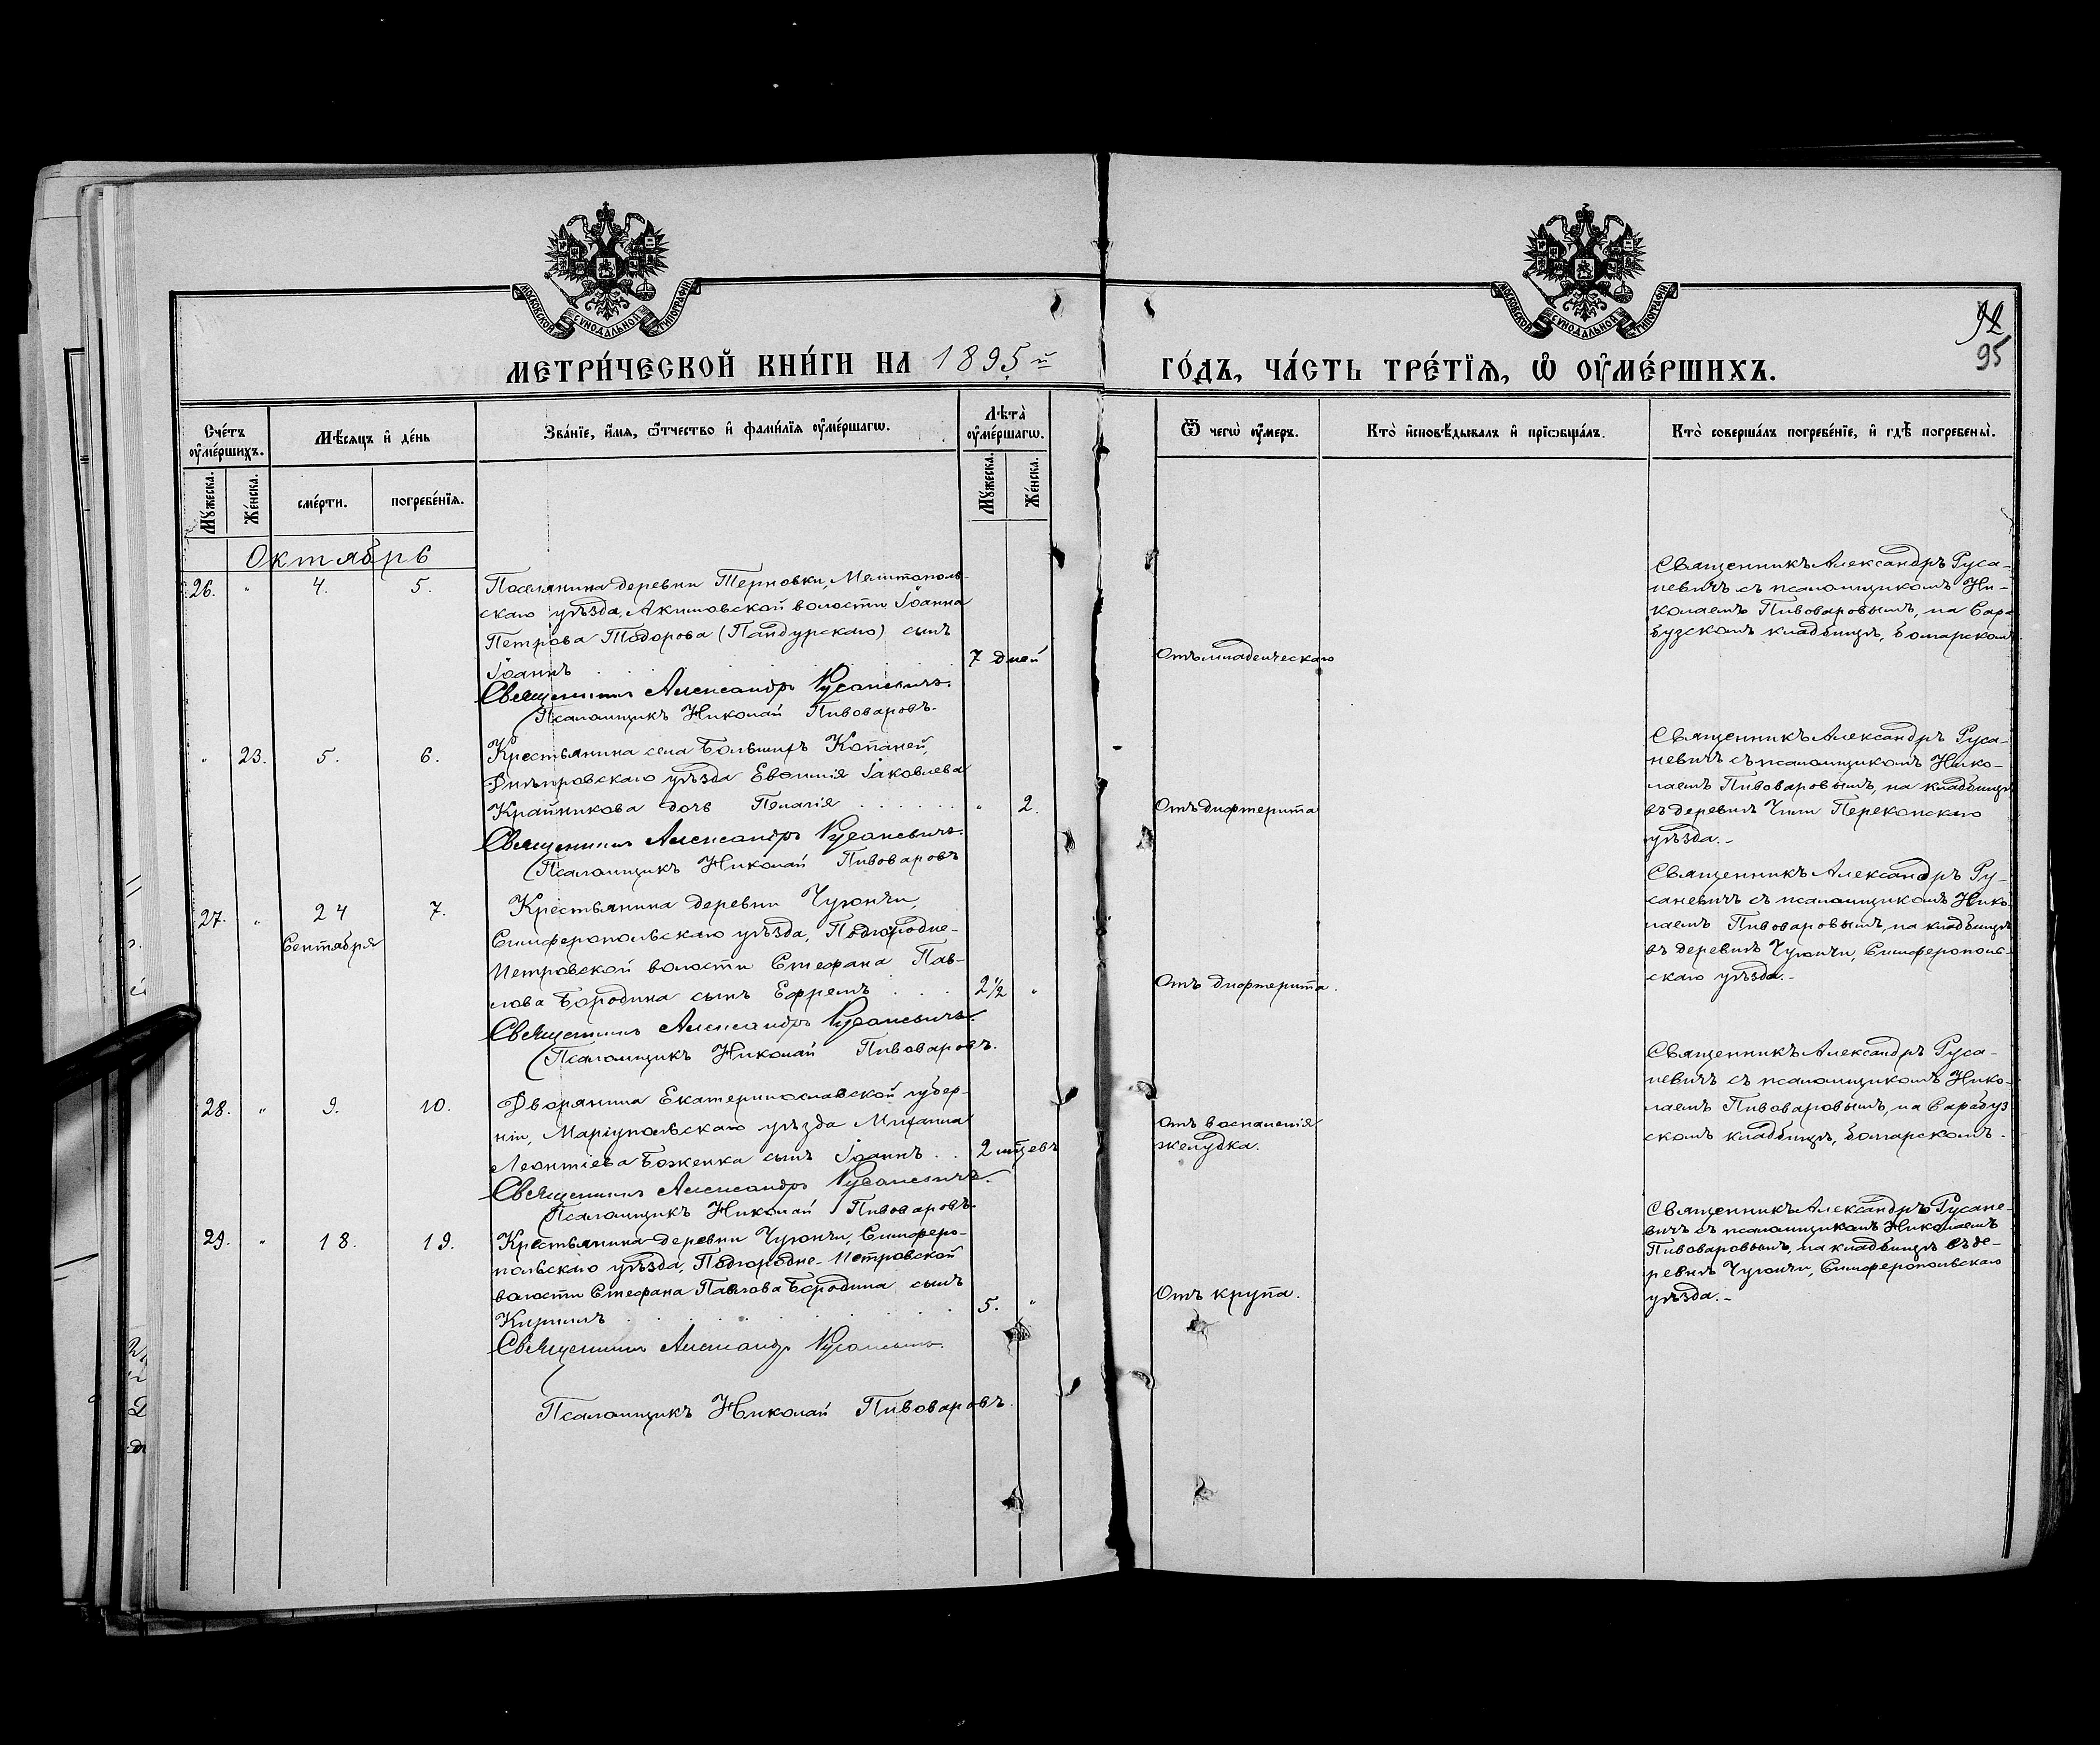 МОСКОВСКОЙ СѴНОДАЛЬНОЙ ТИПОГРАФІИ
МОСКОВСКОЙ СѴНОДАЛЬНОЙ ТИПОГРАФІИ
92
95
МЕТРИ́ЧЕСКОЙ КНИ́ГИ НА 1895й
ГО́ДЪ, ЧА́СТЬ ТРЕ́ТЇѦ, Ѡ҆ ОУ҆МЕ́РШИХЪ.
Сче́тъ оу҆ме́ршихъ.
Мѣ́сѧцъ и҆ де́нь
Зва́нїе, и҆́мѧ, ѻ҆́тчество и҆ фами́лїѧ оу҆ме́ршагѡ.
Лѣ́та оу҆ме́ршагѡ.
Ѿ чегѡ̀ оу҆́меръ.
Кто̀ и҆сповѣ́дывалъ и҆ прїѡбща́лъ.
Кто̀ соверша́лъ погребе́нїе, и҆ гдѣ̀ погребены̀.
Мꙋ́жеска.
Же́нска.
сме́рти.
погребе́нїѧ.
Мꙋ́жеска.
Же́нска.
Октябрь
26. " 4. 5.
Поселянина деревни Терновки, Мелитополь-
скаго уѣзда, Акимовской волости Іоанна
Петрова Тодорова (Пандурскаго) сынъ
Іоаннъ . . . . . 7 дней
Священникъ Александръ Русаневичъ.
Псаломщикъ Николай Пивоваровъ.
Отъ младенческаго
Священникъ Александръ Руса-
невичъ съ псаломщикомъ Ни-
колаемъ Пивоваровымъ, на Сара-
бузскомъ кладбищѣ, болгарскомъ.
" 23. 5. 6.
Крестьянина села Большихъ Копаней,
Днѣпровскаго уѣзда Евѳимія Іаковлева
Крайникова дочь Пелагія . . . . . . " 2.
Священникъ Александръ Русаневичъ.
Псаломщикъ Николай Пивоваровъ
Отъ дифтерита
Священникъ Александръ Руса-
невичъ съ псаломщикомъ Нико-
лаемъ Пивоваровымъ, на кладбищѣ
въ деревнѣ Чили Перекопскаго
уѣзда.-
27. " 24 7.
Сентября
Крестьянина деревни Чуюнчи,
Симферопольскаго уѣзда, Подгородне-
Петровской волости Стефана Пав-
лова Бородина сынъ Ефремъ . . . 2½ "
Священникъ Александръ Русаневичъ.
Псаломщикъ Николай Пивоваровъ.
Отъ дифтерита.
Священникъ Александръ Ру-
саневичъ съ псаломщикомъ Нико-
лаемъ Пивоваровымъ, на кладбищѣ
въ деревнѣ Чуюнчи, Симферополь-
скаго уѣзда.-
28. " 9. 10.
Дворянина Екатеринославской губер-
ніи, Маріупольскаго уѣзда Михаила
Леонтіева Боженка сынъ Іоаннъ . . 2 мѣсцевъ
Священникъ Александръ Русаневичъ.
Псаломщикъ Николай Пивоваровъ.
Отъ воспаленія
желудка.
Священникъ Александръ Руса-
невичъ съ псаломщикомъ Нико-
лаемъ Пивоваровымъ, на Сарабуз
скомъ кладбищѣ, болгарскомъ.
29. " 18. 19.
Крестьянина деревни Чуюнчи, Симферо-
польскаго уѣзда, Подгородне-Петровской
волости Стефана Павлова Бородина сынъ
Кириллъ . . . . . . 5. "
Священникъ Александръ Русаневичъ
Псаломщикъ Николай Пивоваровъ.
Отъ крупа.
Священникъ Александръ Русане-
вичъ съ псаломщикомъ Николаемъ
Пивоваровымъ, на кладбищѣ въ де-
ревнѣ Чуюнчи, Симферопольскаго
уѣзда.-